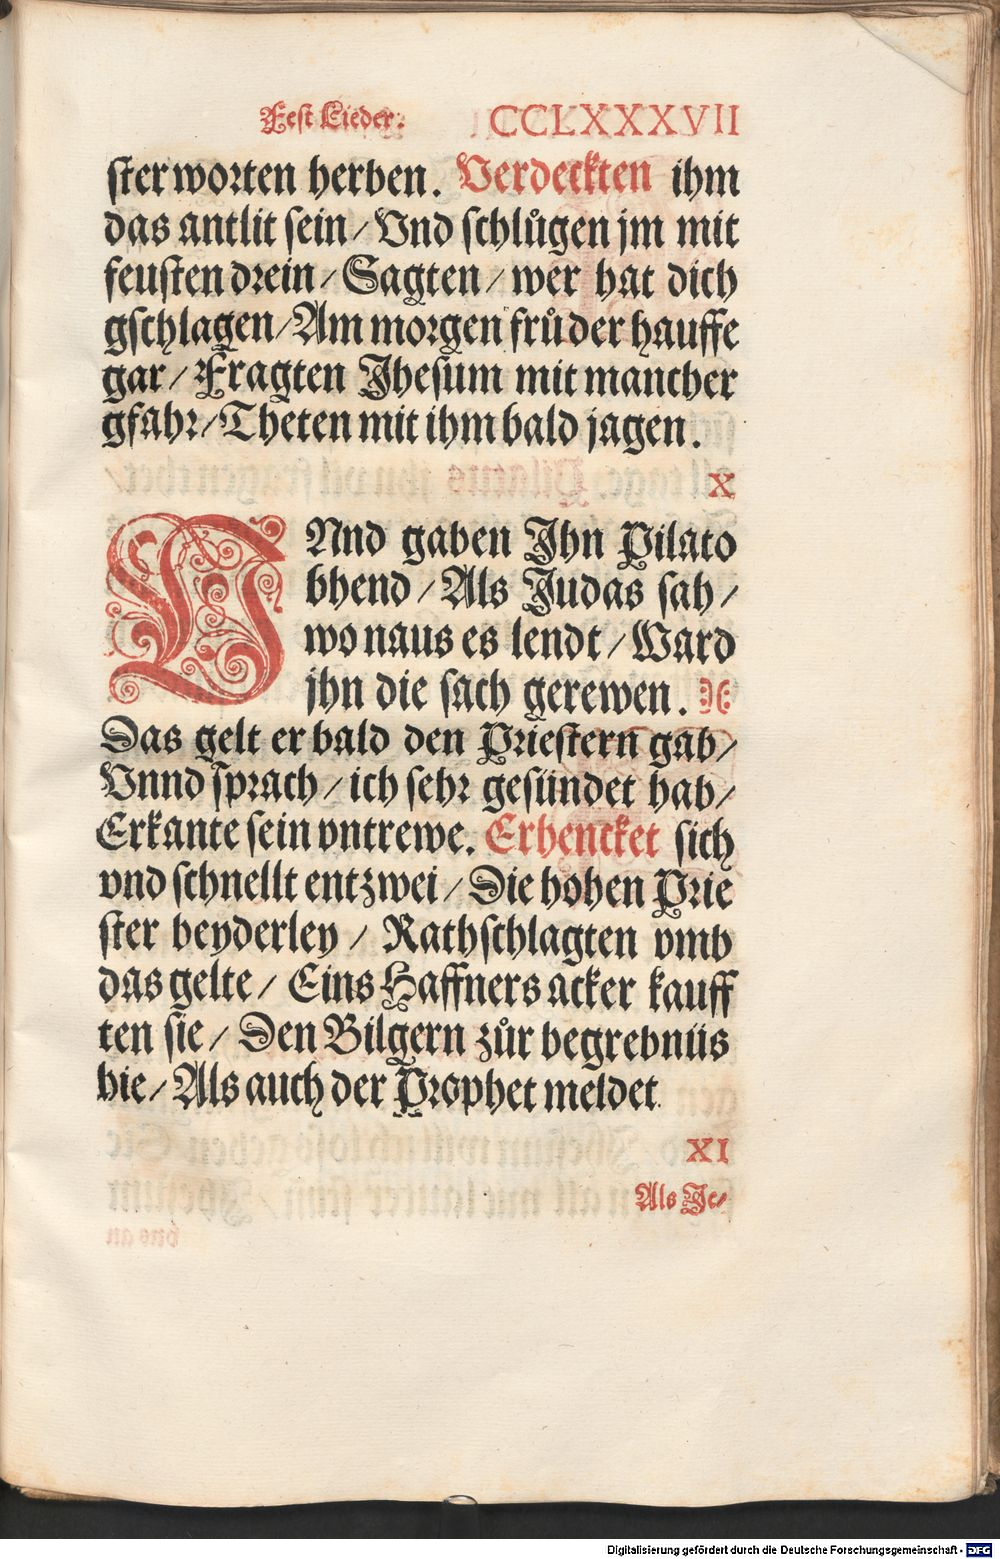 Fest Lieder. CCLXXXVII
ster worten herben. Verdeckten ihm
das antlit sein / Vnd schlůgen jm mit
feusten drein / Sagten / wer hat dich
gschlagen / Am morgen frů der hauffe
gar / Fragten Jhesum mit mancher
gfahr / Theten mit ihm bald jagen.
X
VNnd gaben Jhn Pilato
bhend / Als Judas sah /
wo naus es lendt / Ward
jhn die sach gerewen.
Das gelt er bald den Priestern gab /
Vnnd sprach / ich sehr gesündet hab /
Erkante sein vntrewe. Erhencket sich
vnd schnellt entzwei / Die hohen Prie
ster beyderley / Rathschlagten vmb
das gelte / Eins Haffners acker kauff
ten sie / Den Bilgern zůr begrebnüs
hie / Als auch der Prophet meldet.
XI
Als Je /
Digitalisierung gefördert durch die Deutsche Forschungsgemeinschaft - DFG